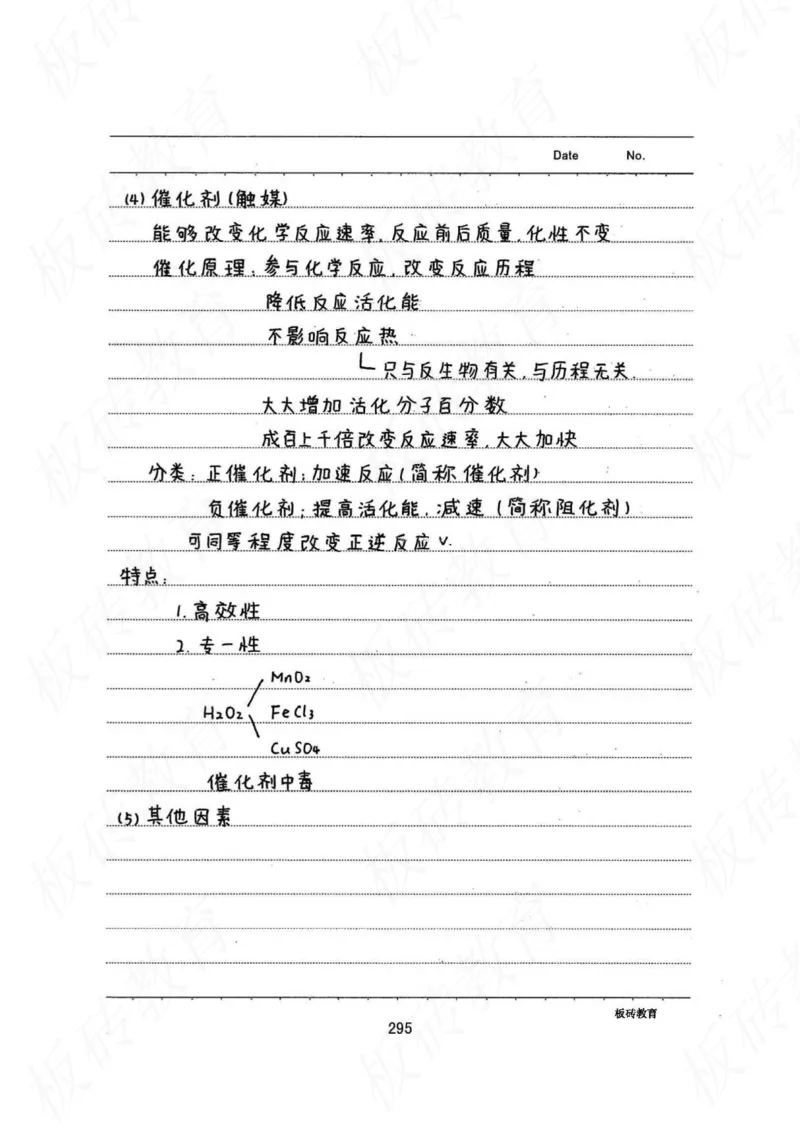 Date No.
(4) 催化剂(触媒)
能够改变化学反应速率,反应前后质量,化性不变
催化原理:参与化学反应,改变反应历程
降低反应活化能
不影响反应热
只与反生物有关,与历程无关.
大大增加活化分子百分数
成百上千倍改变反应速率,大大加快
分类:正催化剂:加速反应(简称催化剂)
负催化剂:提高活化能,减速(简称阻化剂)
可同等程度改变正逆反应v.
特点:
1.高效性
2.专一性
MnO₂
H₂O₂ FeCl₃
CuSO₄
催化剂中毒
(5)其他因素
板砖教育
295